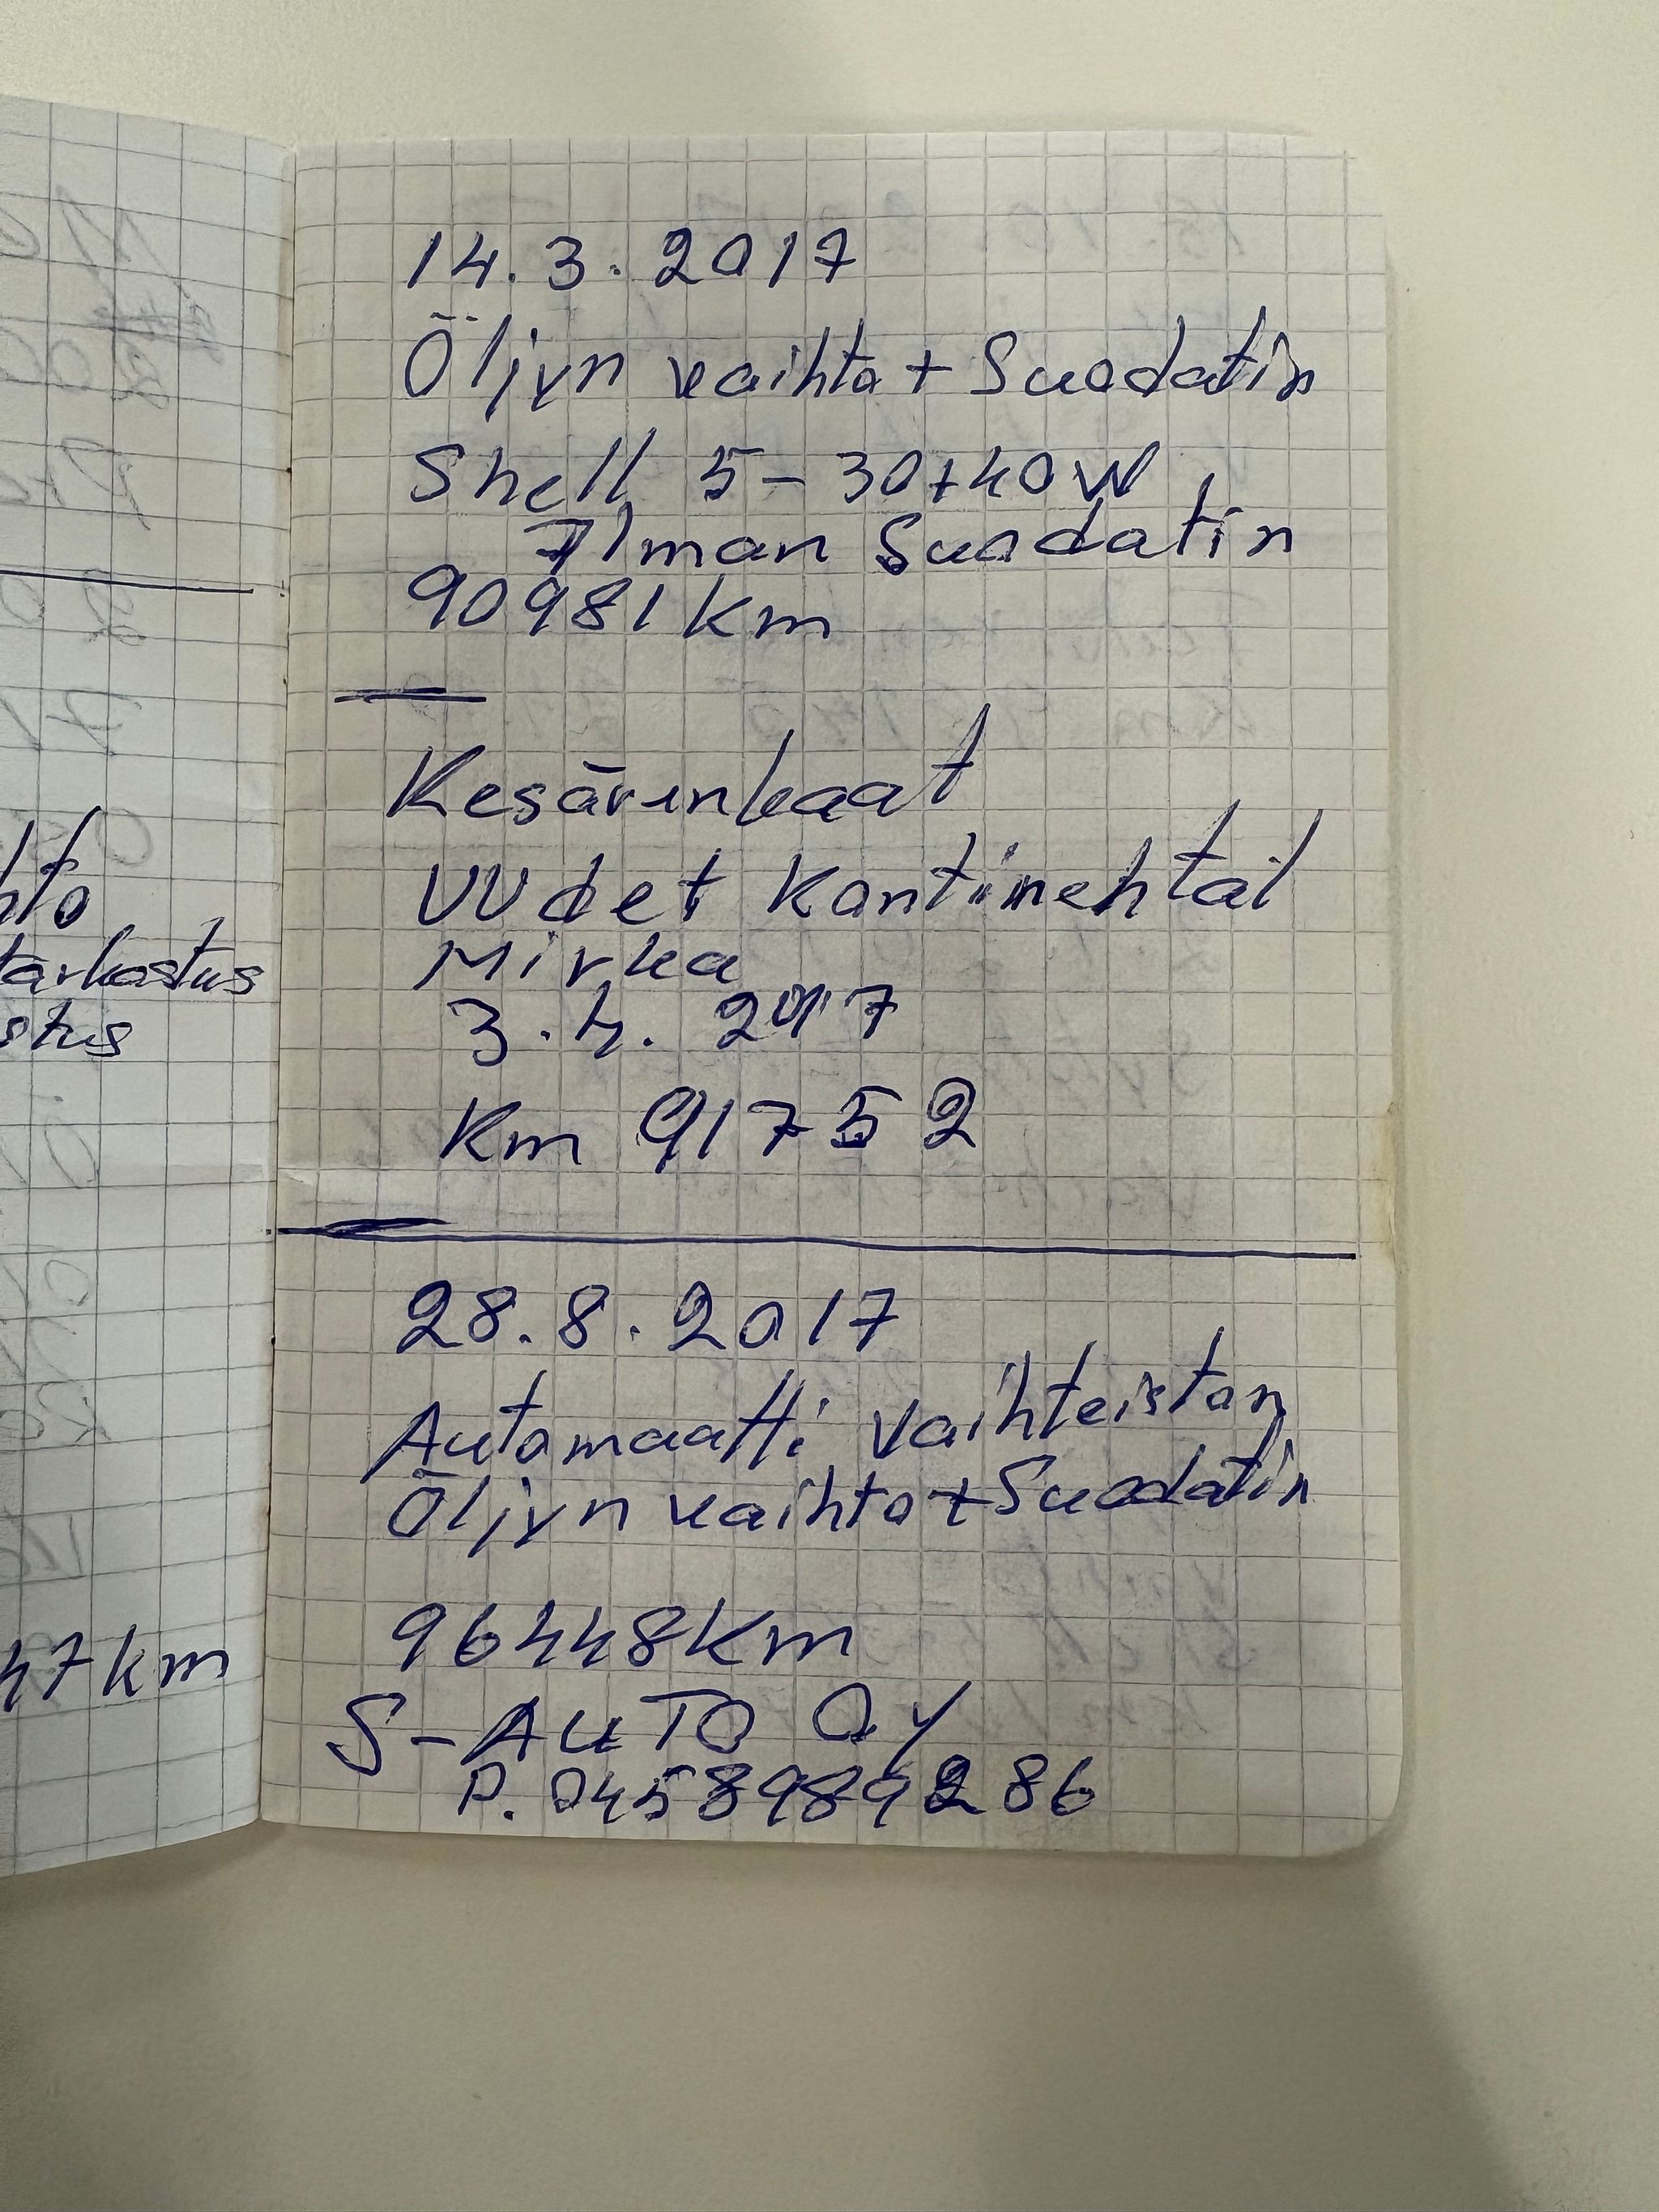 hto
tarkastus
stus
47km
14.3.2017
Öljyn vaihto + Suodatin
Shell 5-30+40W
Ilman Suodatin
90981km
Kesärenkaat
UUdet Kontinehtal
Mirka
3.4.2017
Km 91752
28.8.2017
Automaatti vaihteiston
Öljyn vaihto + Suodatin
96448km
S-AUTO Oy
P. 0458989286